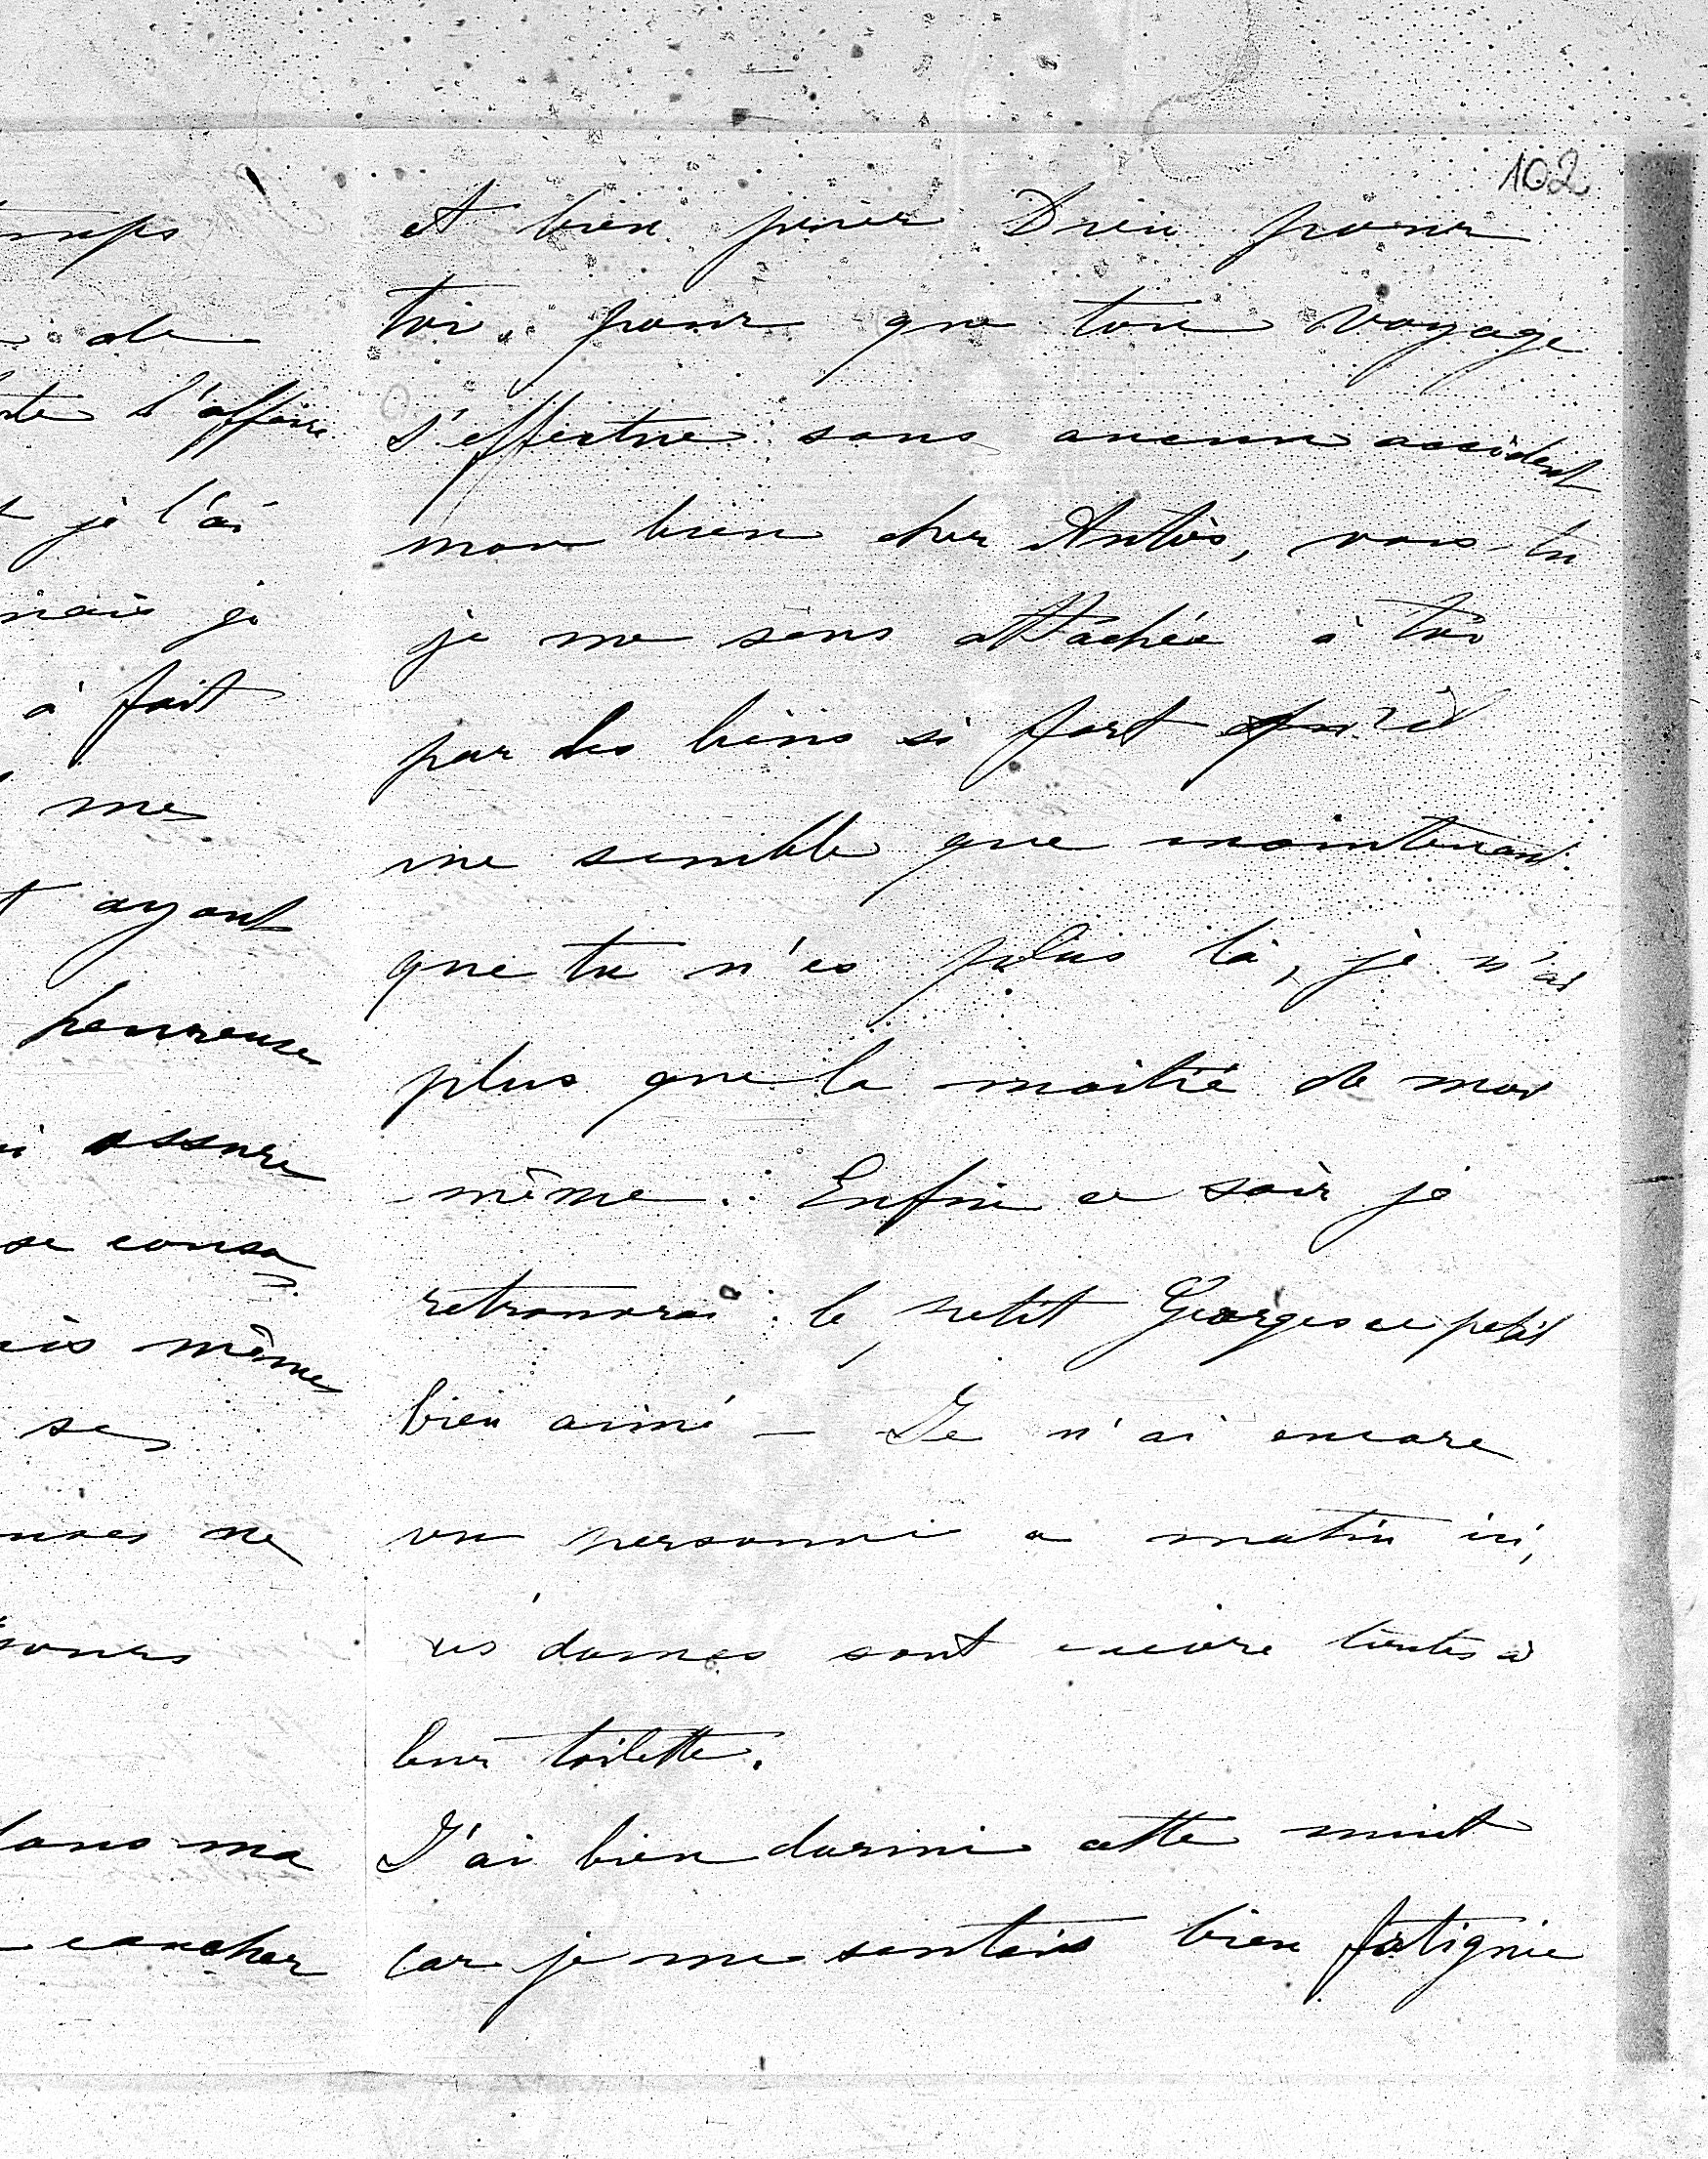 102
mps
de
l'affaire
je l'ai
mais je
à fait
mes
ayant
heureuse
assure
se consa
même
ses
ne
dans ma
coucher
et bien prier Dieu pour
toi, pour que ton voyage
s'effectue sans aucun accident
mon bien cher vois-tu
je me sens attachée à toi
par des liens si fort qu'il
me semble que maintenant
que tu n'es plus là, je n'ai
plus que la moitié de moi
même. Enfin ce soir je
retrouverai le petit Georges ce petit
bien aimé - Je n'ai encore
vu personne ce matin ici,
ces dames sont encore toutes à
leur toilette.
J'ai bien dormi cette nuit
car je me sentais bien fatiguée